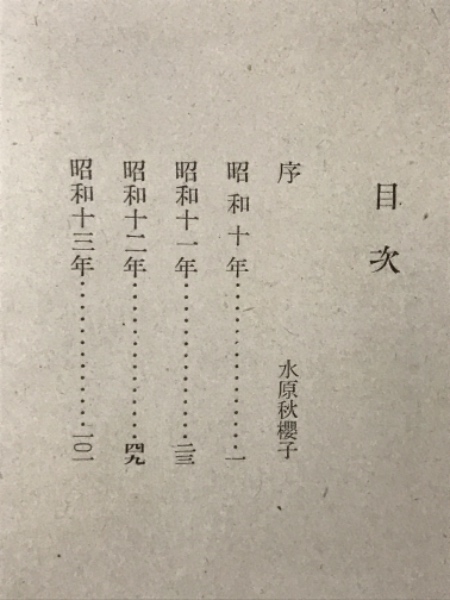 目次
序 水原秋櫻子
昭和十年……………一
昭和十一年……………二三
昭和十二年……………四九
昭和十三年……………一〇一